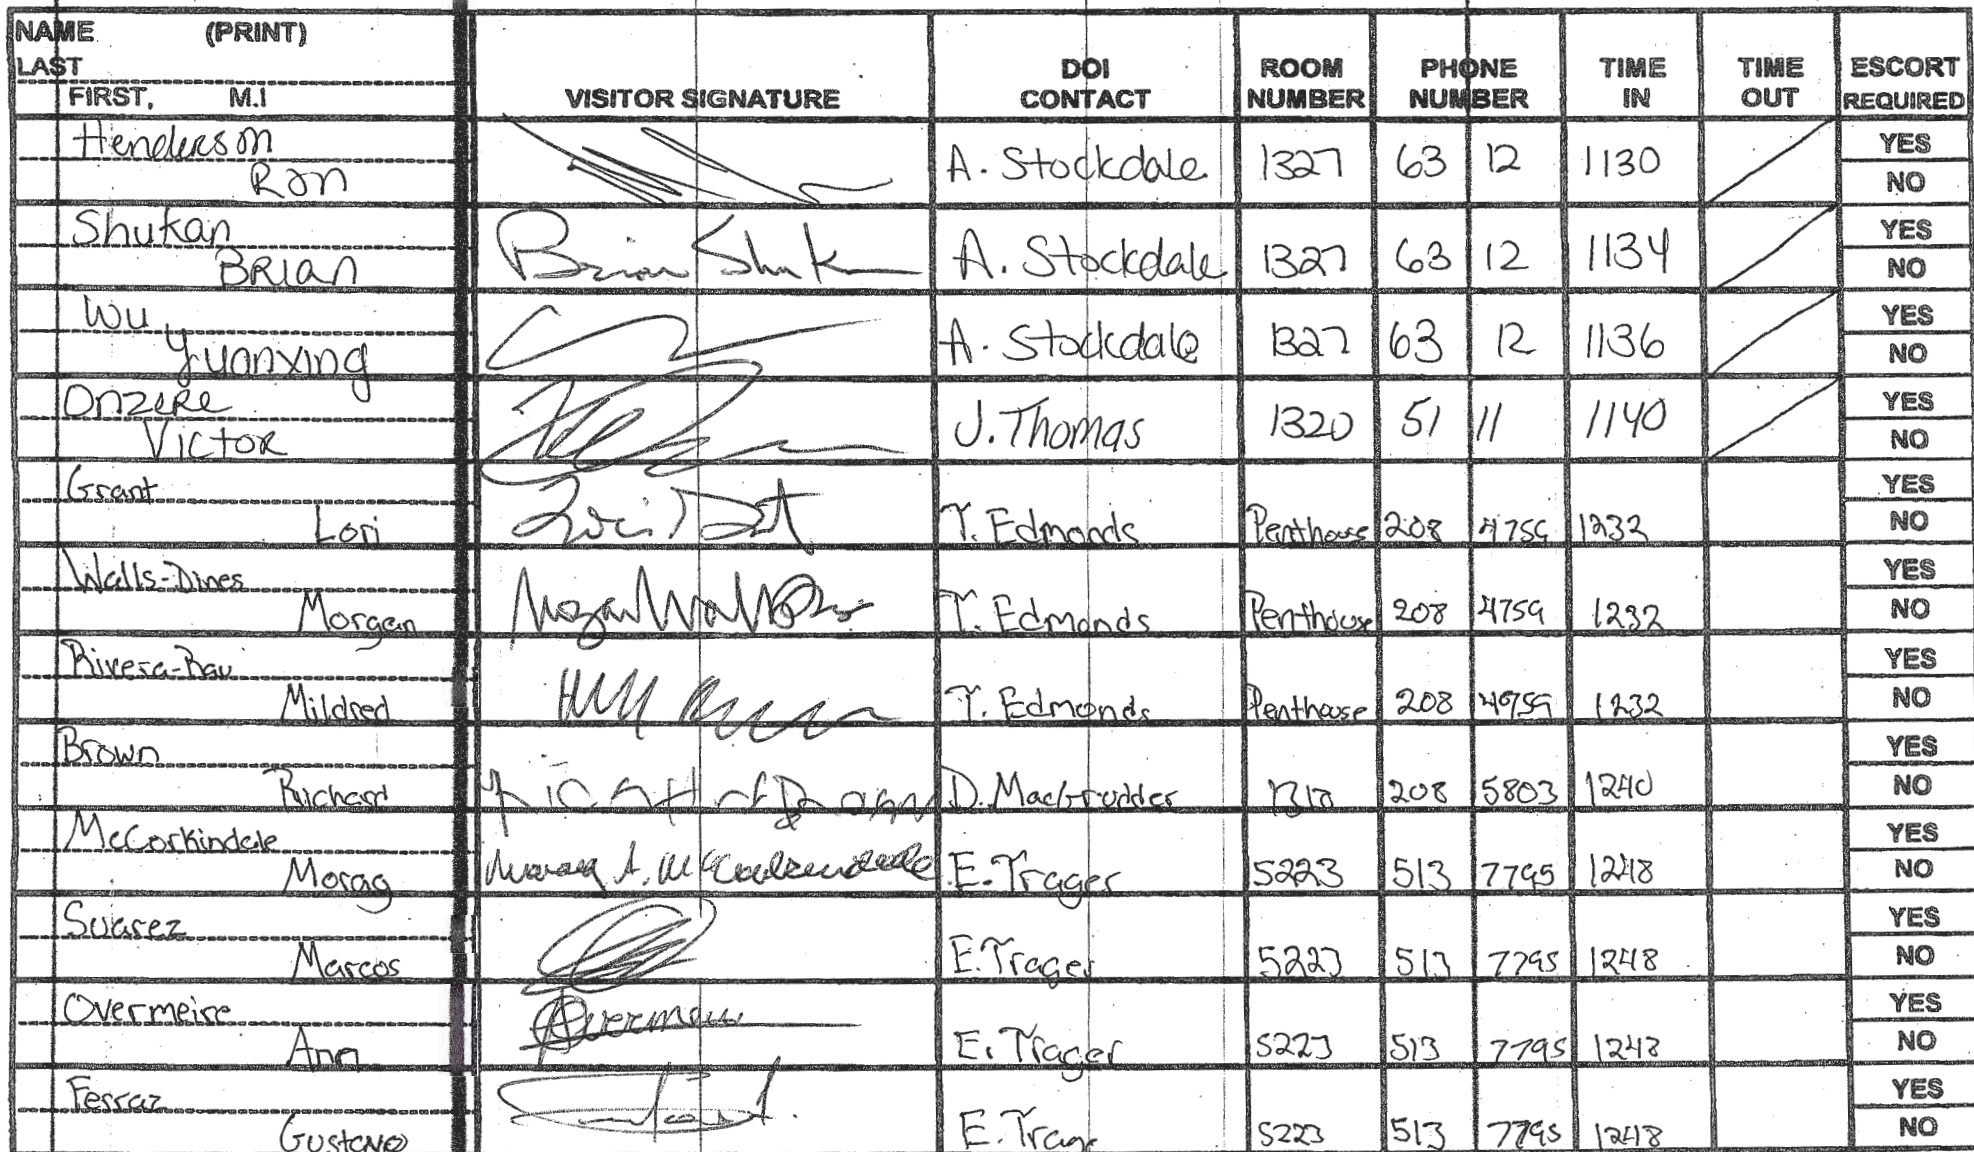 NAME (PRINT)
LAST
FIRST, M.I
VISITOR SIGNATURE
DOI CONTACT
ROOM NUMBER
PHONE NUMBER
TIME IN
TIME OUT
ESCORT REQUIRED
Henderson
Ron
A. Stockdale 1327 63 12 1130
YES
NO
Shukan
BRIan
Brian Shuk A. Stockdale 1327 63 12 1134
YES
NO
Wu
Yuanxing
A. Stockdale 1327 63 12 1136
YES
NO
Onzere
Victor
J. Thomas 1320 51 11 1140
YES
NO
Grant
Lori
T. Edmonds Penthouse 208 4759 1232
YES
NO
Walls-Dines
Morgan
T. Edmonds Penthouse 208 4759 1232
YES
NO
Rivera-Rau
Mildred
T. Edmonds Penthouse 208 4759 1232
YES
NO
Brown
Richard
D. MacGrudder 208 5803 1240
YES
NO
McCorkindale
Morag
Morag A. McCorkindale E. Trager 5223 513 7795 1248
YES
NO
Suarez
Marcos
E. Trager 5223 513 7795 1248
YES
NO
Overmeire
Ann
E. Trager 5223 513 7795 1248
YES
NO
Ferraz
Gustavo
E. Trage 5223 513 7795 1248
YES
NO